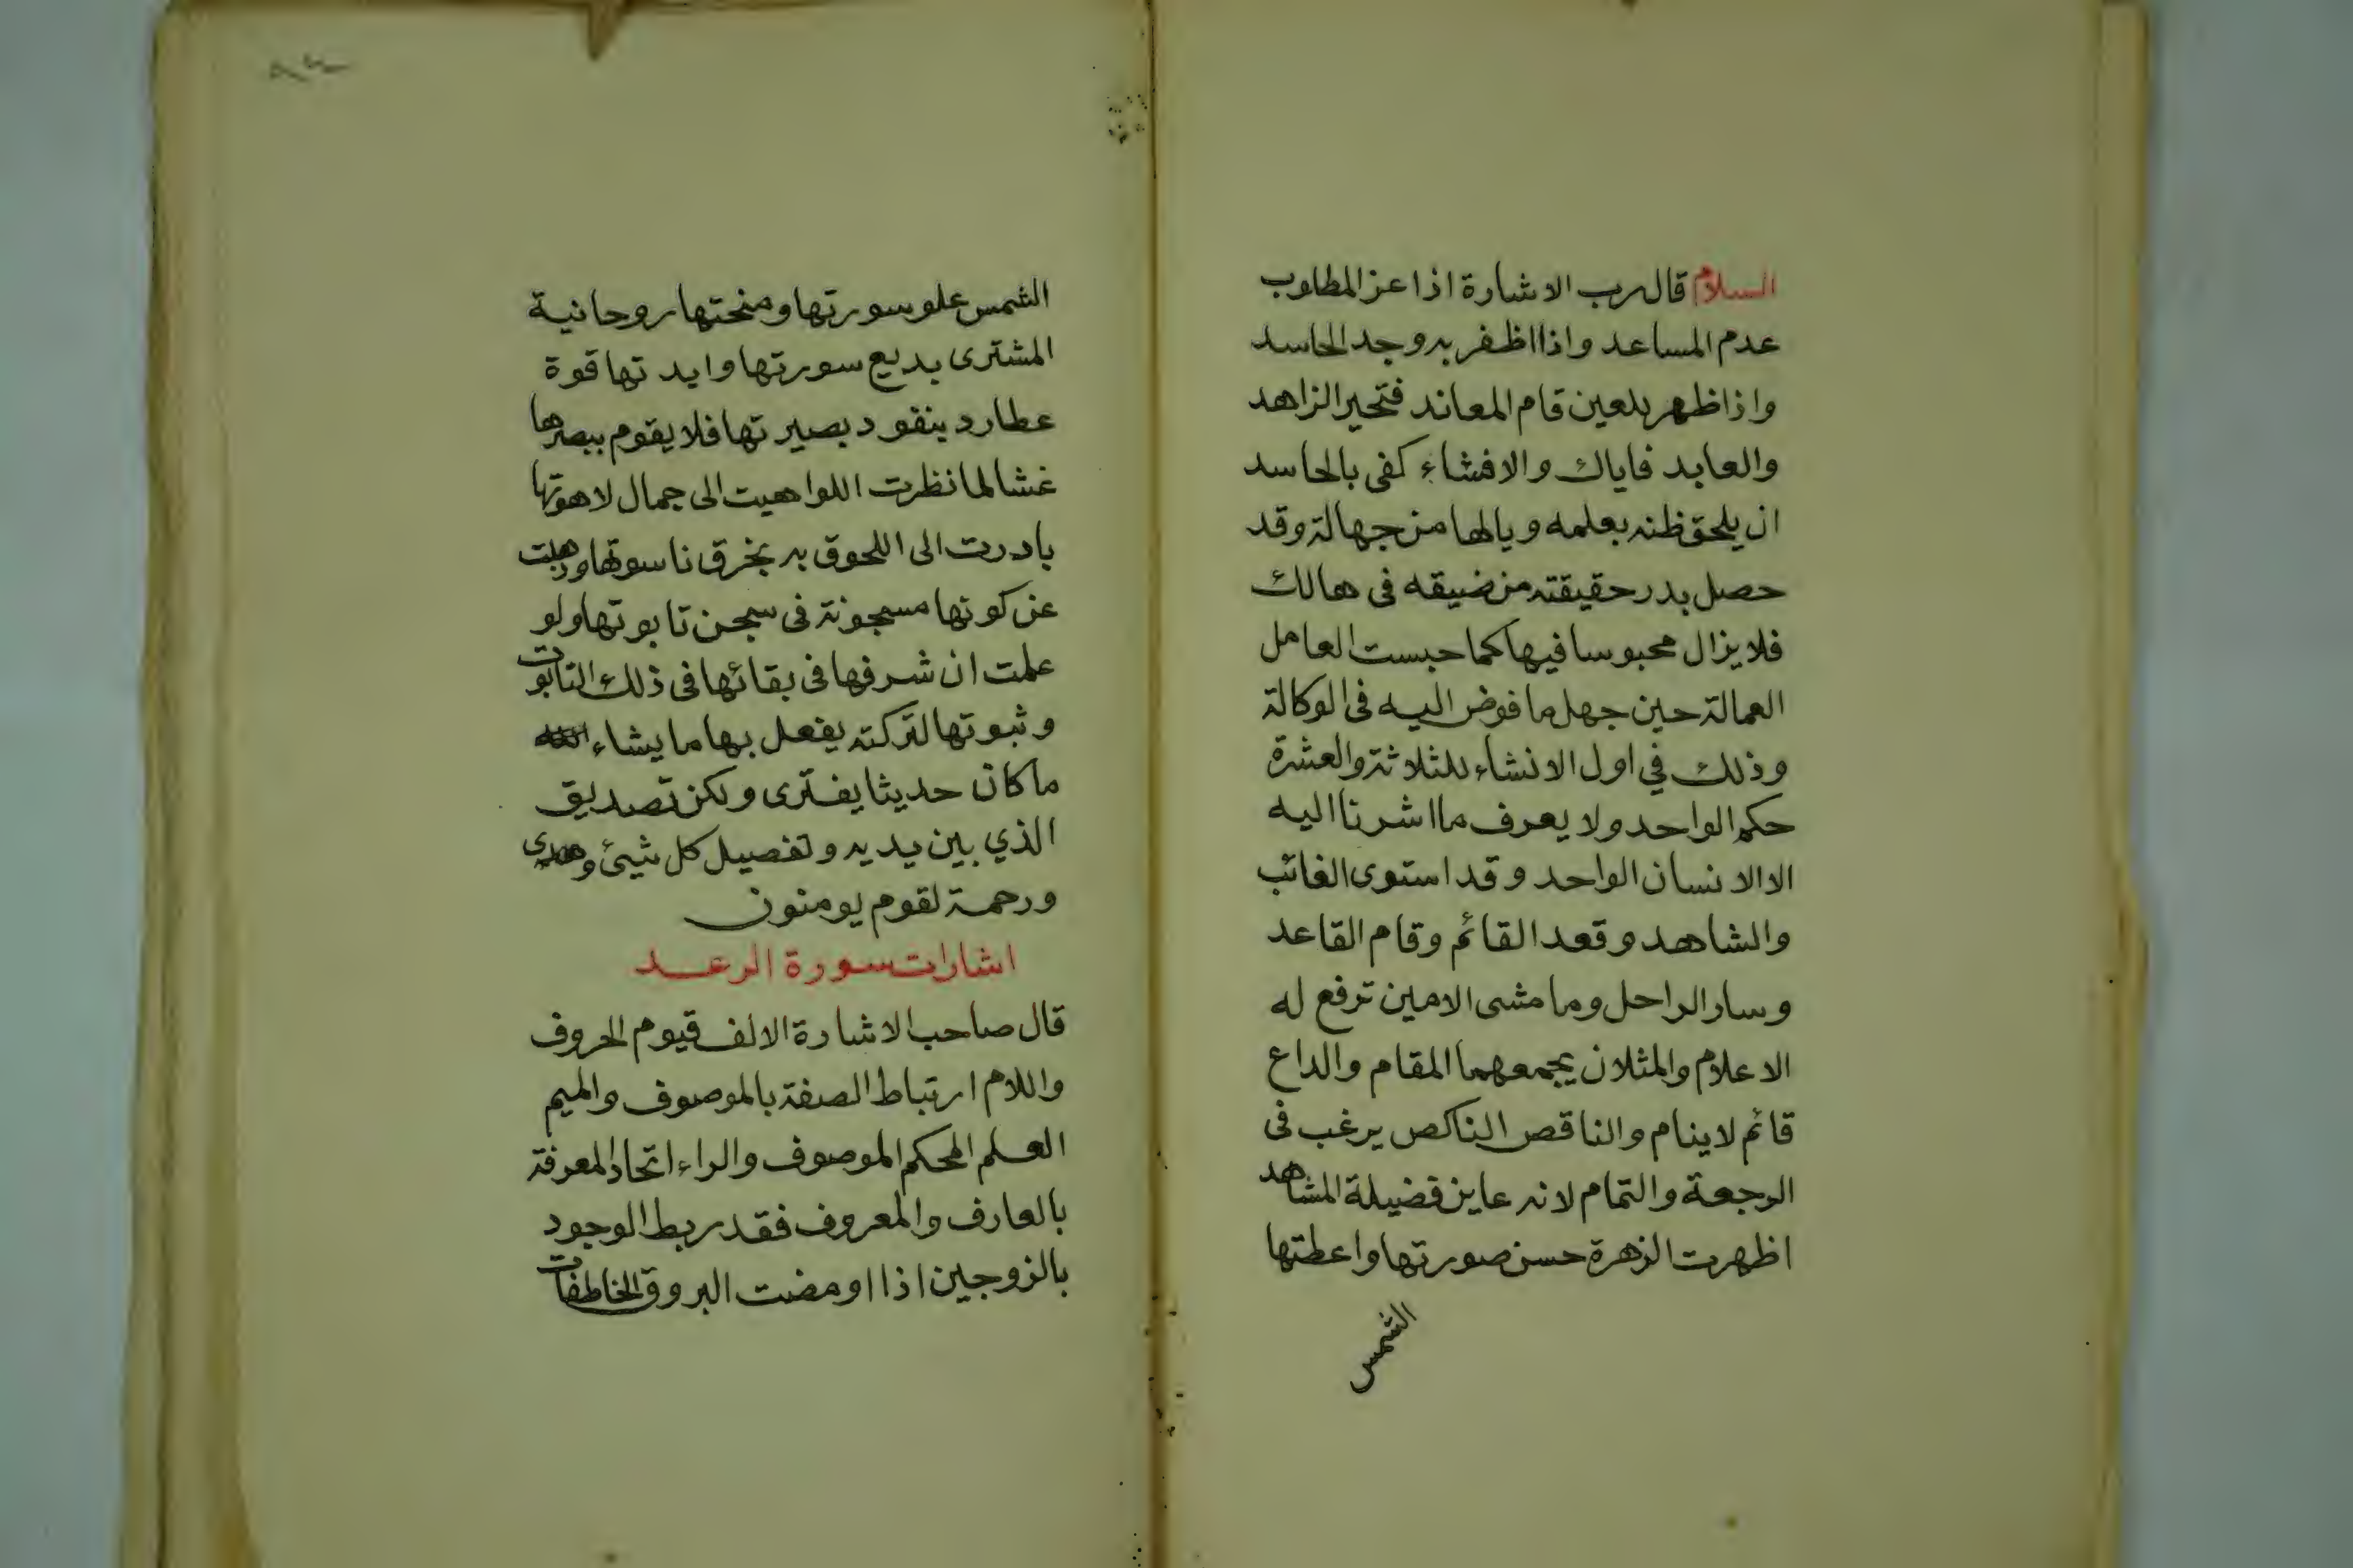 السلام قال رب الاشارة اذا عز المطلوب
عدم المساعد واذا اظفر به وجد الحاسد
واذا ظهر للعين قام المعاند فتحير الزاهد
والعابد فاياك والافشاء كفى بالحاسد
ان يلحق ظنه بعلمه ويالها من جهالة وقد
حصل بدر حقيقته من ضيقه فى هالك
فلا يزال محبوسا فيها كما حبست العامل
العمالة حين جهل ما فوض اليه فى الوكالة
وذلك في اول الانشاء للثلاثة والعشرة
حكم الواحد ولا يعرف ما اشرنا اليه
الا الانسان الواحد وقد استوى الغائب
والشاهد وقعد القائم وقام القاعد
وسار الراحل وما مشى الامين ترفع له
الاعلام والمثلان يجمعهما المقام والداع
قائم لا ينام والناقص الناكص يرغب فى
الرجعة والتمام لانه عاين فضيلة المشاهد
اظهرت الزهرة حسن صورتها واعطتها
الشمس
الشمس علو سورتها ومنحتها روحانية
المشترى بديع سورتها وايد تها قوة
عطارد بنقود بصير تها فلا يقوم ببصرها
غشا لما نظرت اللواهيت الى جمال لاهوتها
بادرت الى اللحوق به بخرق ناسوتها وذهبت
عن كونها مسجونة فى سجن تابوتها ولو
علمت ان شرفها فى بقائها فى ذلك التابوت
وثبوتها لتركته يفعل بها ما يشاء
ما كان حديثا يفترى ولكن تصديق
الذي بين يديه وتفصيل كل شيئ وهدى
ورحمة لقوم يومنون
اشارات سورة الرعد
قال صاحب الاشارة الالف قيوم الحروف
واللام ارتباط الصفة بالموصوف والميم
العلم المحكم الموصوف والراء اتحاد المعرفة
بالعارف والمعروف فقد ربط الوجود
بالزوجين اذا اومضت البروق الخاطفات